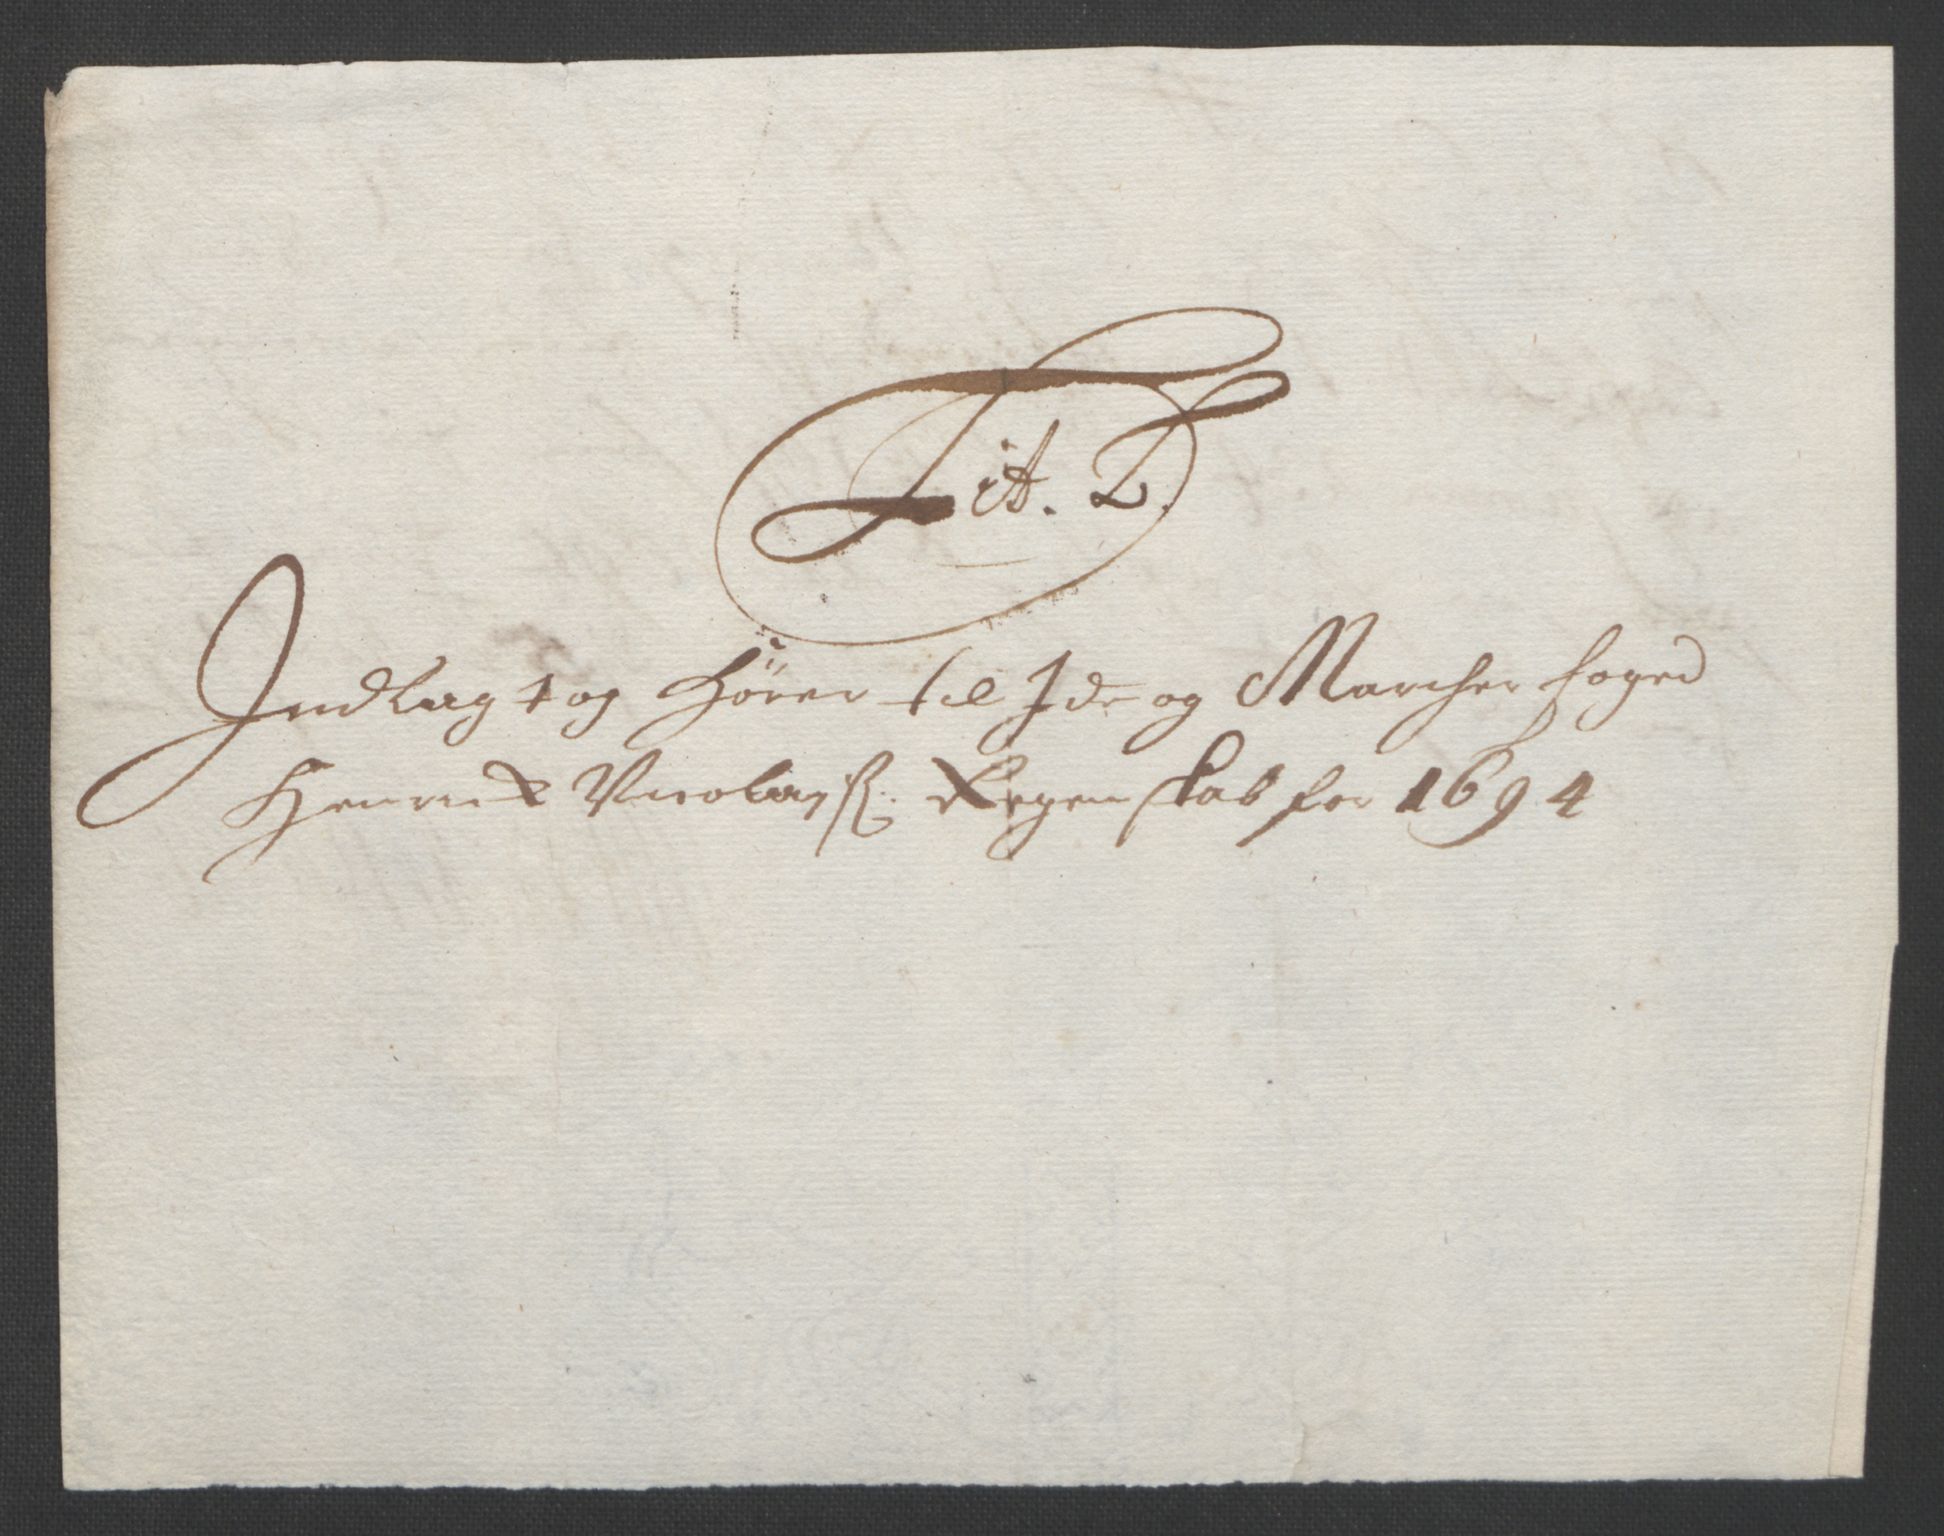 Lit. L.
Indlagt og hører til Ide og Marcker foged
Henrick Nicolayß: Regenskab for 1694